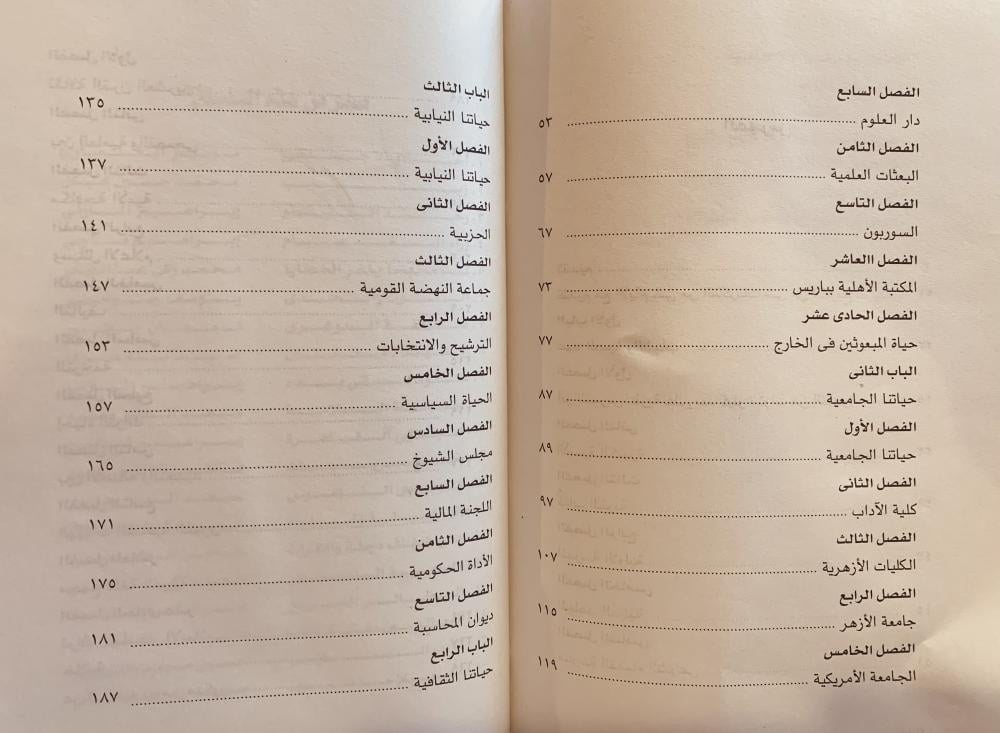 الفصل السابع
دار العلوم ........ ٥٣
الفصل الثامن
البعثات العلمية ........ ٥٧
الفصل التاسع
السوربون ........ ٦٧
الفصل االعاشر
المكتبة الأهلية بباريس ........ ٧٣
الفصل الحادى عشر
حياة المبعوثين فى الخارج ........ ٧٧
الباب الثانى
حياتنا الجامعية ........ ٨٧
الفصل الأول
حياتنا الجامعية ........ ٨٩
الفصل الثانى
كلية الآداب ........ ٩٧
الفصل الثالث
الكليات الأزهرية ........ ١٠٧
الفصل الرابع
جامعة الأزهر ........ ١١٥
الفصل الخامس
الجامعة الأمريكية ........ ١١٩
الباب الثالث
حياتنا النيابية ........ ١٣٥
الفصل الأول
حياتنا النيابية ........ ١٣٧
الفصل الثانى
الحزبية ........ ١٤١
الفصل الثالث
جماعة النهضة القومية ........ ١٤٧
الفصل الرابع
الترشيح والانتخابات ........ ١٥٣
الفصل الخامس
الحياة السياسية ........ ١٥٧
الفصل السادس
مجلس الشيوخ ........ ١٦٥
الفصل السابع
اللجنة المالية ........ ١٧١
الفصل الثامن
الأداة الحكومية ........ ١٧٥
الفصل التاسع
ديوان المحاسبة ........ ١٨١
الباب الرابع
حياتنا الثقافية ........ ١٨٧